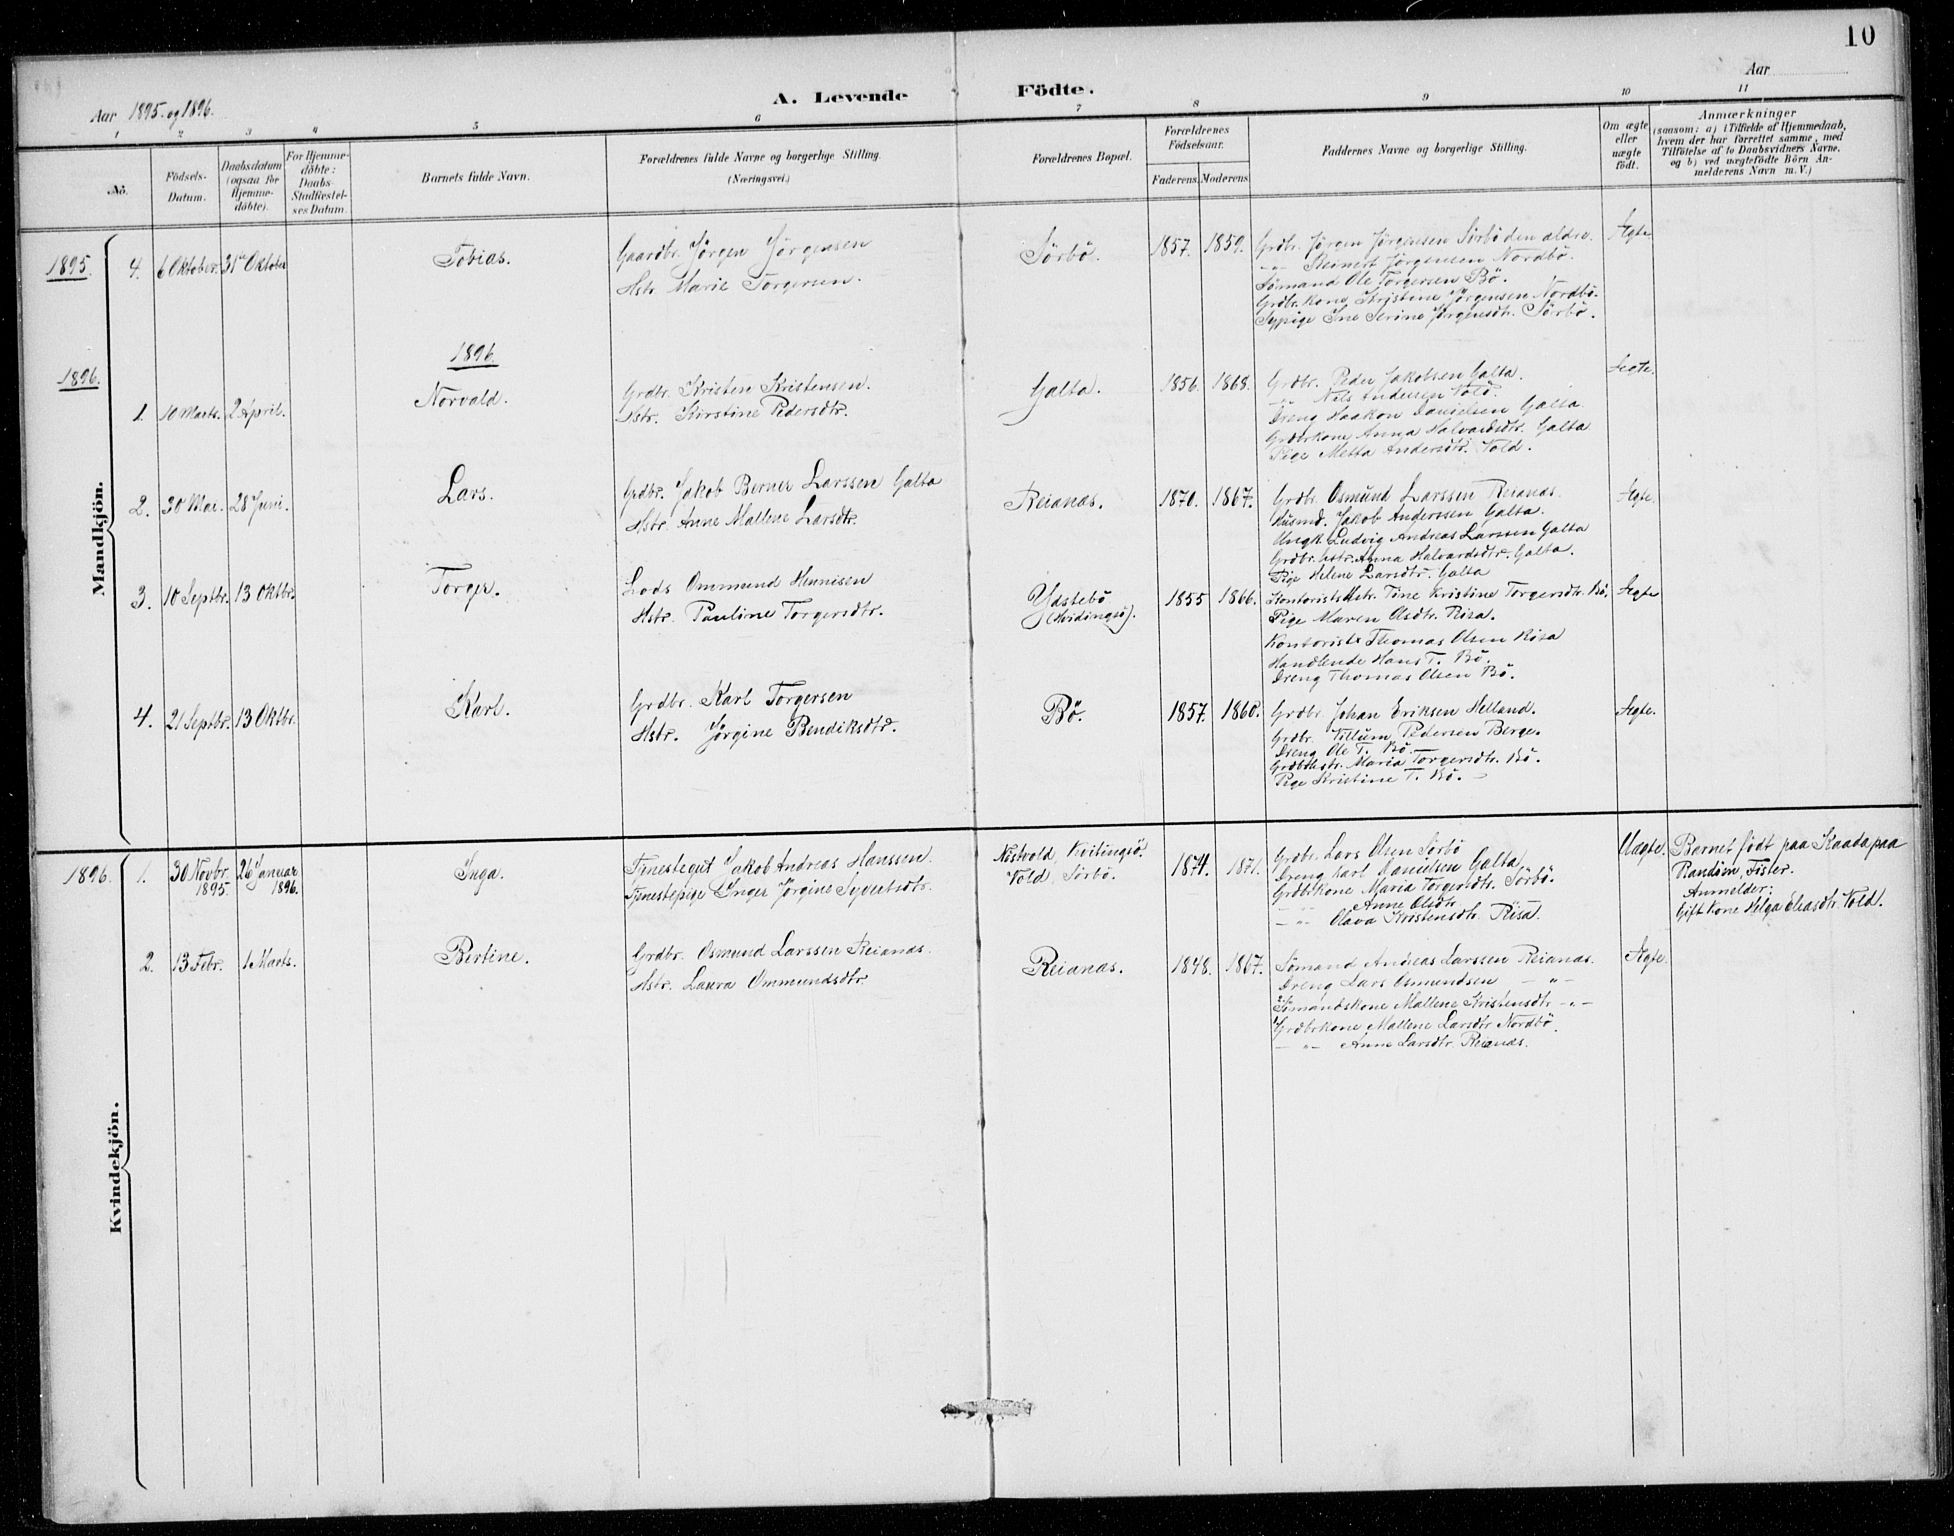 10
Aar 1895 og 1896.
A. Levende Födte.
Aar
1 2 3 4 5 6 7 8 9 10 11
No.
Födsels-Datum.
Daabsdatum (ogsaa for Hjemme-döbte).
For Hjemme-döbte: Daabs-Stadfæstel-ses Datum.
Barnets fulde Navn.
Forældrenes fulde Navne og borgerlige Stilling.
(Næringsvei.)
Forældrenes Bopæl.
Forældrenes Födselsaar.
Faderens. Moderens.
Faddernes Navne og borgerlige Stilling.
Om ægte eller uægte födt.
Anmærkninger
(saasom: a) i Tilfælde af Hjemmedaab,
hvem der har forrettet samme, med
Tilföielse af to Daabsvidners Navne,
og b) ved uægtefödte Börn An-
melderens Navn m. V.)
Mandkjön.
1895.
4. 6 Oktober. 31 Oktober
Tobias.
Gaardbr. Jørgen Jørgensen
Hstr. Marie Torgersen.
Sörbö.
1857. 1859.
Grdbr. Jørgen Jørgensen Sörbö den ældre.
— " — Reinert Jørgensen Nordbö.
Sömand Ole Torgersen Bö.
Grdbr. kone Kristine Jørgensen Nordbö.
Sypige Ine Serine Jørgensdtr. Sörbö.
Ægte.
1896.
1896.
1. 10 Marts. 2 April.
Norvald.
Grdbr. Kristen Kristensen.
Hstr. Kirstine Pedersdtr.
Galta.
1856. 1868.
Grdbr. Peder Jakobsen Galta.
— " — Nils Andersen Vold.
Dreng Haakon Danielsen Galta
Grdbrkone Anna Halvardsdtr. Galta
Pige Metta Andersdtr. Vold.
Ægte.
2. 30 Mai. 28 Juni.
Lars.
Grdbr. Jakob Berner Larssen Galta
Hstr. Anne Mallene Larsdtr.
Reianas.
1870. 1867.
Grdbr. Osmund Larssen Reianas.
Husmd. Jakob Anderssen Galta.
Ungk. Ludvig Andreas Larssen Galta
Grdbr. hstr. Anna Halvardsdtr. Galta.
Pige Helene Larsdtr. Galta
Ægte.
3. 10 Septbr. 13 Oktbr.
Torger.
Lods Ommund Hennisen
Hstr. Pauline Torgersdtr.
Ydstebö
(Hvidingsö).
1855 1866.
Kontorists Hstr. Tine Kristine Torgersdtr. Bö.
Pige Maren Olsdtr. Risa.
Kontorist Thomas Olsen Risa
Handlende Hans T. Bö.
Dreng Thomas Olsen Bö.
Ægte
4. 21 Septbr. 13 Oktbr.
Karl.
Grdbr. Karl Torgersen
Hstr. Jørgine Bendiksdtr.
Bö.
1857. 1860.
Grdbr. Johan Eriksen Helland.
Grdbr. Villum Pedersen Berge.
Dreng Ole T. Bö.
Grdbrhstr. Maria Torgersdtr. Bö.
Pige Kristine T. Bö.
Ægte.
Kvindekjön.
1896.
1. 30 Novbr. 1895. 26 Januar 1896.
Inga.
Tjenestegut Jakob Andreas Hanssen.
Tjenestepige Inger Jørgine Syvertsdtr.
Nestvold, Kvitingsö.
Vold, Sörbö.
1874. 1871.
Grdbr. Lars Olsen Sörbö
Dreng Karl Danielsen Galta
Grdbrkone Maria Torgersdtr. Sörbö.
— " — Anne Olsdtr. "
— " — Olava Kristensdtr. Risa.
Uægte.
Barnet födt paa Skaada paa
Randöen, Fister.
Anmelder:
Gift Kone Helga Eliasdtr. Vold.
2. 13 Febr. 1 Marts.
Bertine.
Grdbr. Osmund Larssen Reianas.
Hstr. Laura Ommundsdtr.
Reianas.
1848. 1867.
Sömand Andreas Larssen Reianas.
Dreng Lars Osmundsen — " —
Sömandskone Mallene Kristensdtr — " —
Grdbrkone Mallene Larsdtr Nordbö.
— " — Anne Larsdtr. Reianas.
Ægte.